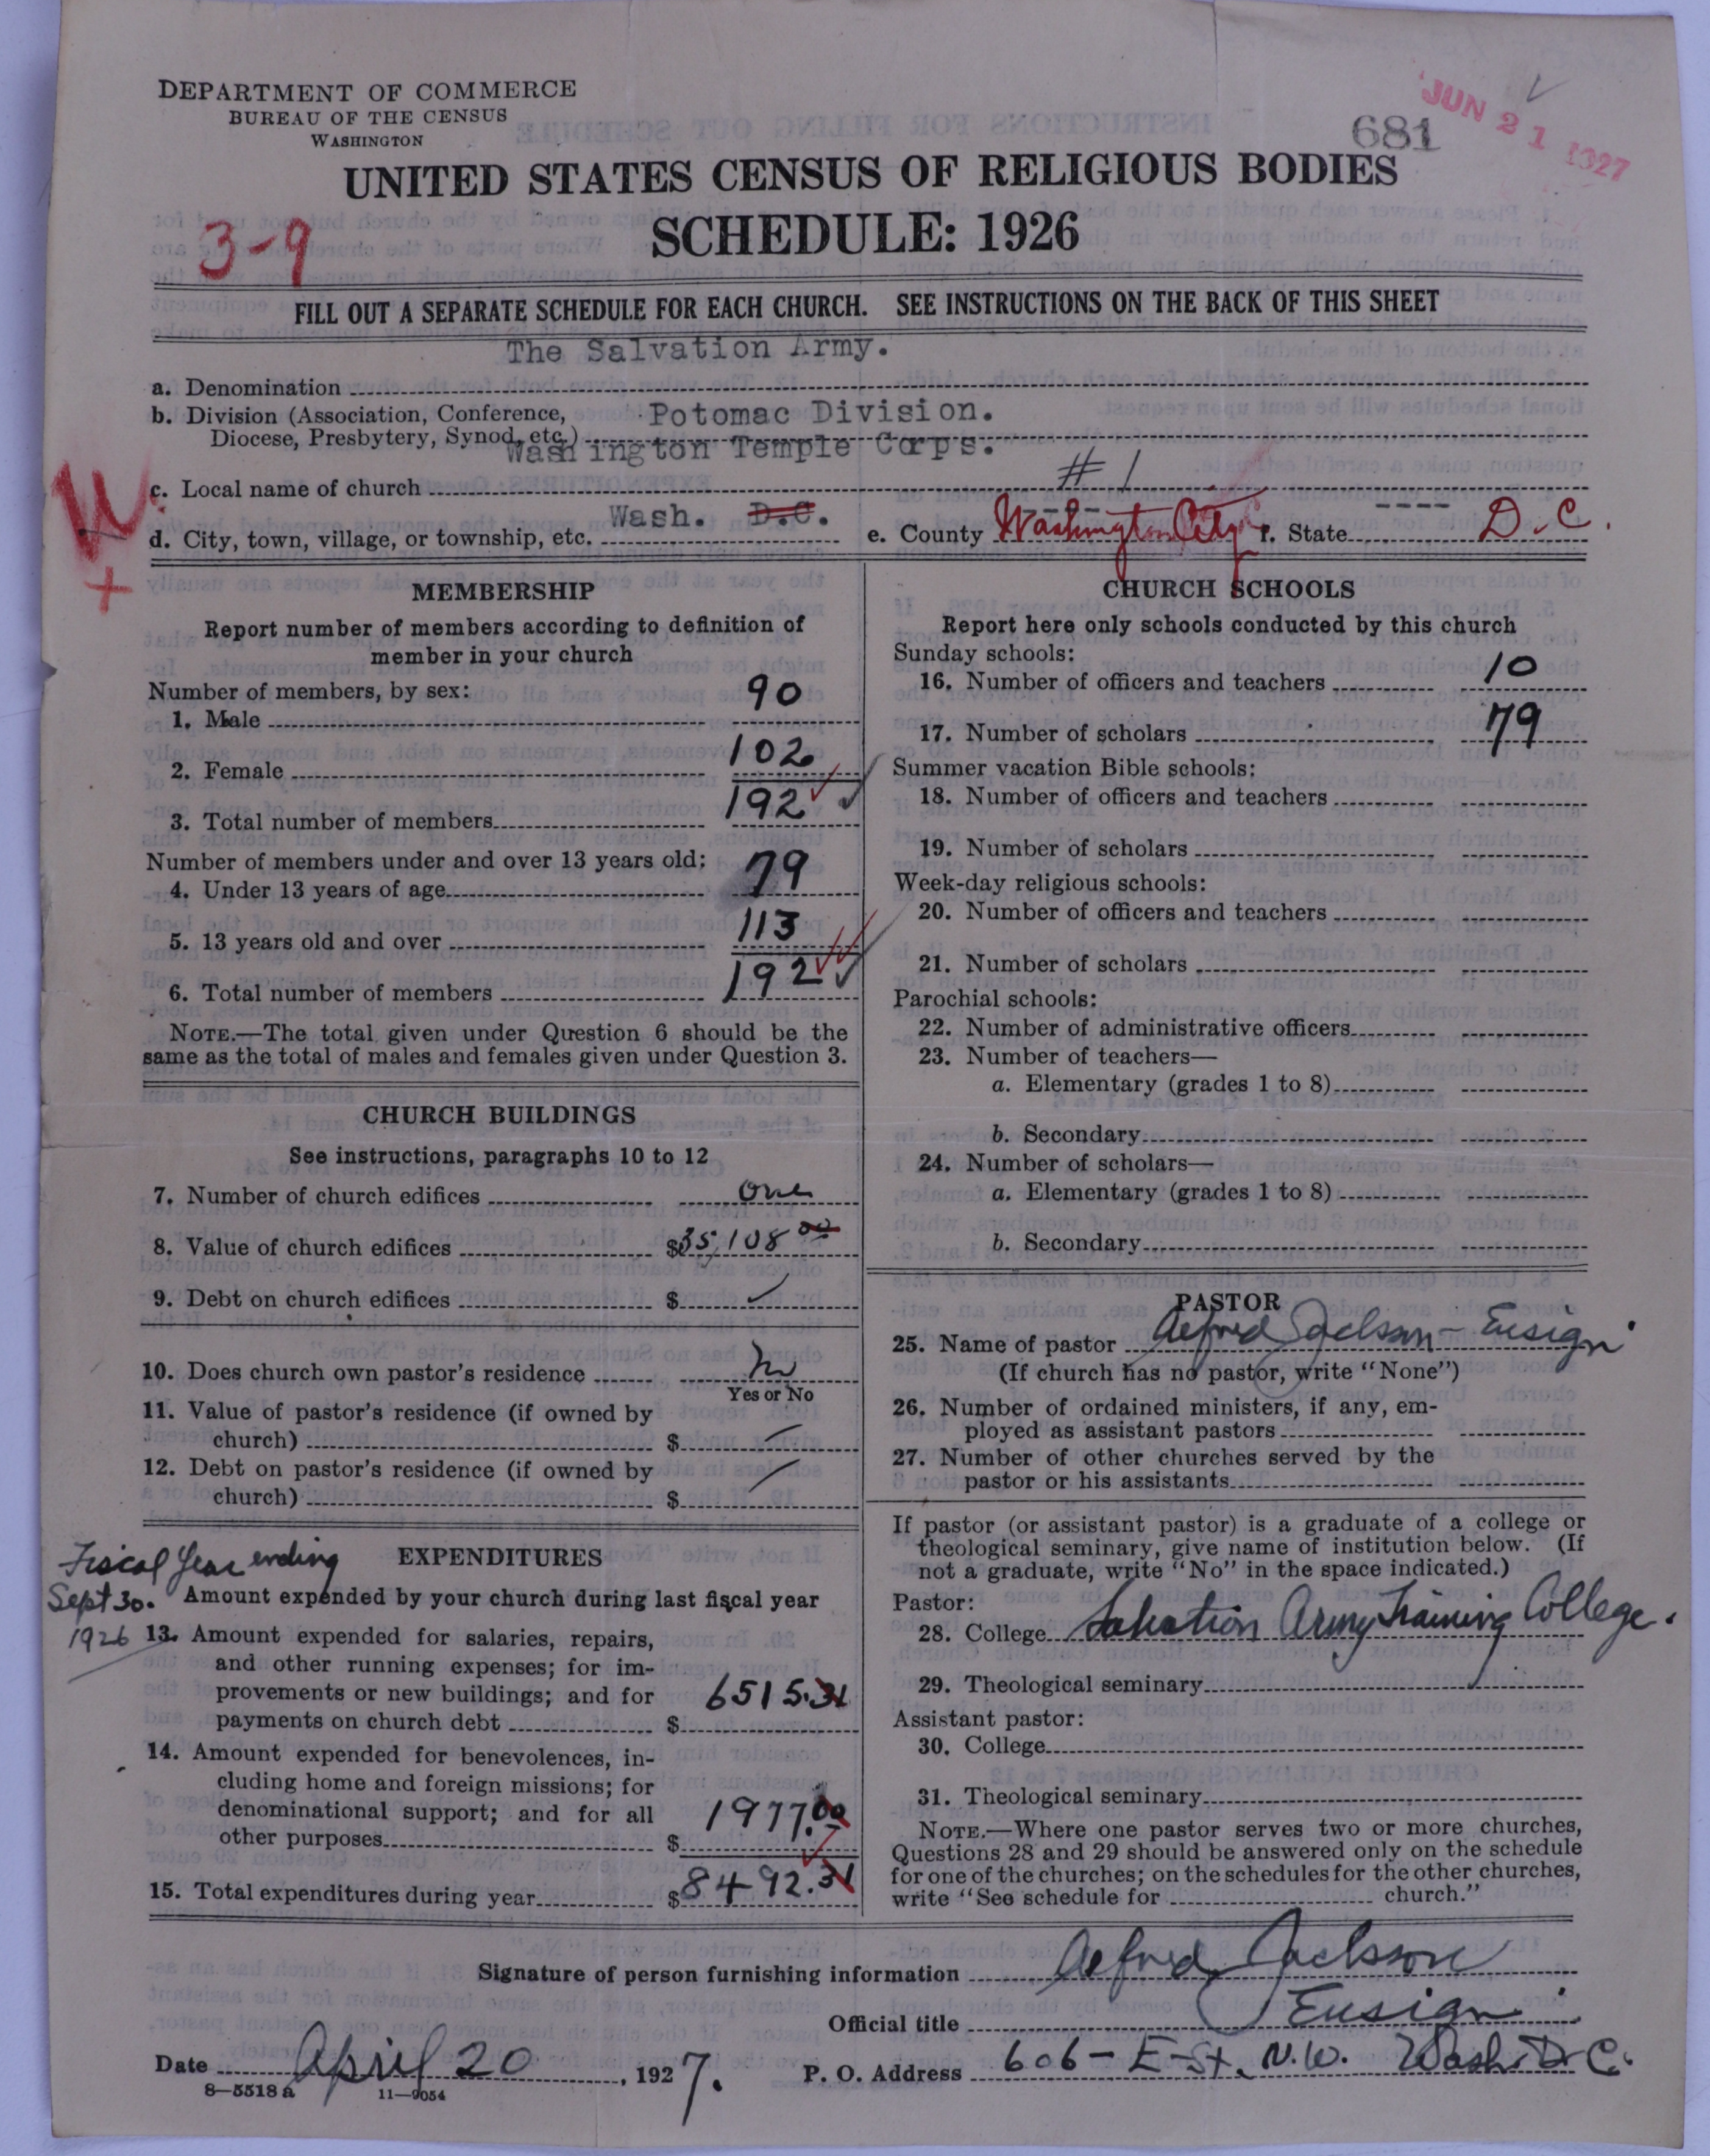 DEPARTMENT OF COMMERCE
BUREAU OF THE CENSUS
WASHINGTON
681
JUN 21 1927
UNITED STATES CENSUS OF RELIGIOUS BODIES
SCHEDULE: 1926
3-9
FILL OUT A SEPARATE SCHEDULE FOR EACH CHURCH. SEE INSTRUCTIONS ON THE BACK OF THIS SHEET
The Salvation Army.
a. Denomination
b. Division (Association, Conference, Potomac Division.
Diocese, Presbytery, Synod, etc.)
Washington Temple Corps.
c. Local name of church # 1
d. City, town, village, or township, etc. Wash. D.C. e. County Washington City f. State D.C.
MEMBERSHIP
Report number of members according to definition of
member in your church
Number of members, by sex:
1. Male 90
2. Female 102
3. Total number of members 192
Number of members under and over 13 years old:
4. Under 13 years of age 79
5. 13 years old and over 113
6. Total number of members 192
NOTE.—The total given under Question 6 should be the
same as the total of males and females given under Question 3.
CHURCH BUILDINGS
See instructions, paragraphs 10 to 12
7. Number of church edifices one
8. Value of church edifices $35,108 00
9. Debt on church edifices $
10. Does church own pastor's residence No
Yes or No
11. Value of pastor's residence (if owned by
church) $
12. Debt on pastor's residence (if owned by
church) $
Fiscal Year ending
Sept 30.
1926
EXPENDITURES
Amount expended by your church during last fiscal year
13. Amount expended for salaries, repairs,
and other running expenses; for im-
provements or new buildings; and for
payments on church debt $ 6515.31
14. Amount expended for benevolences, in-
cluding home and foreign missions; for
denominational support; and for all
other purposes $ 1977.00
15. Total expenditures during year $8492.31
CHURCH SCHOOLS
Report here only schools conducted by this church
Sunday schools:
16. Number of officers and teachers 10
17. Number of scholars 79
Summer vacation Bible schools:
18. Number of officers and teachers
19. Number of scholars
Week-day religious schools:
20. Number of officers and teachers
21. Number of scholars
Parochial schools:
22. Number of administrative officers
23. Number of teachers—
a. Elementary (grades 1 to 8)
b. Secondary
24. Number of scholars—
a. Elementary (grades 1 to 8)
b. Secondary
PASTOR
25. Name of pastor Alfred Jackson - Ensign
(If church has no pastor, write "None")
26. Number of ordained ministers, if any, em-
ployed as assistant pastors
27. Number of other churches served by the
pastor or his assistants
If pastor (or assistant pastor) is a graduate of a college or
theological seminary, give name of institution below. (If
not a graduate, write "No" in the space indicated.)
Pastor:
28. College Salvation Army Training College.
29. Theological seminary
Assistant pastor:
30. College
31. Theological seminary
NOTE.—Where one pastor serves two or more churches,
Questions 28 and 29 should be answered only on the schedule
for one of the churches; on the schedules for the other churches,
write "See schedule for church."
Signature of person furnishing information Alfred Jackson
Official title Ensign
Date April 20, 1927. P. O. Address 606 - E - St. N.W. Wash. D.C.
8-5518 a 11-9054